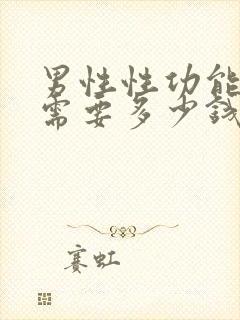 男性性功能
需要多少钱
赛虹